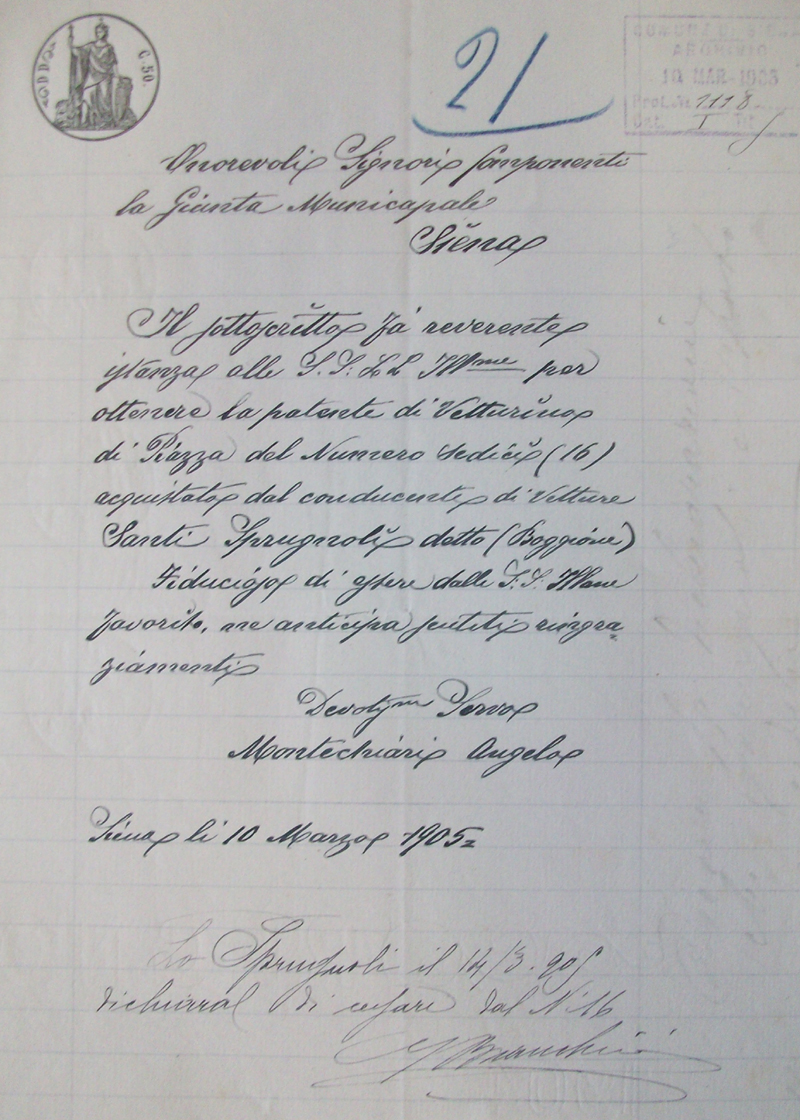 C. 50.
21
COMUNE DI SIENA
ARCHIVIO
10 MAR 1905
Prot. N. 1118
Cat. I Tit
Onorevoli Signori Componenti
la Giunta Municapale
Siena
Il sottoscritto fà reverente
istanza alle S. S. LL Ill^me per
ottenere la patente di Vetturino
di Piazza del Numero sedici (16)
acquistato dal conducente di Vetture
Santi Sprugnoli detto (Boggione)
Fiducioso di essere dalle S. S. Illme
favorito, ne anticipa sentiti ringra
ziamenti
Devotissmo Servo
Montechiari Angelo
Siena li 10 Marzo 1905
Lo Sprugnoli il 14/3. 905
dichiarò di cessare dal N. 16
Bianchi